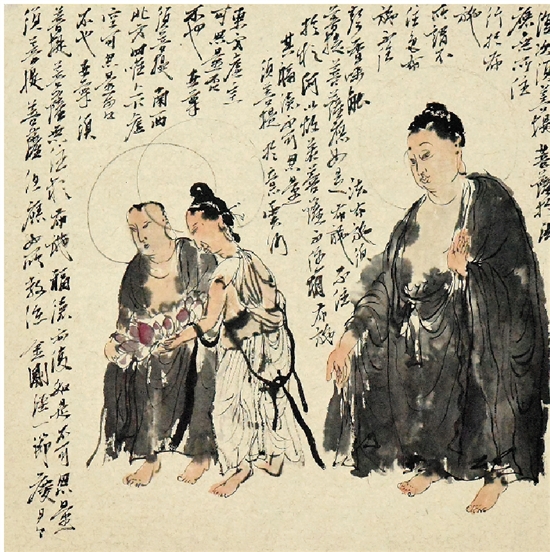 復次須菩提菩薩於法
應無所住
行於布
施
所謂不
住色布
施不住
聲香味觸
法布施須
菩提菩薩應如是布施不住
於相何以故若菩薩不住相布施
其福德不可思量
須菩提於意云何
東方虛空
可思量不
不也世尊
須菩提南西
北方四維上下虛
空可思量不
不也世尊須
菩提菩薩無住相布施福德亦復如是不可思量
須菩提菩薩但應如所教住金剛經一節